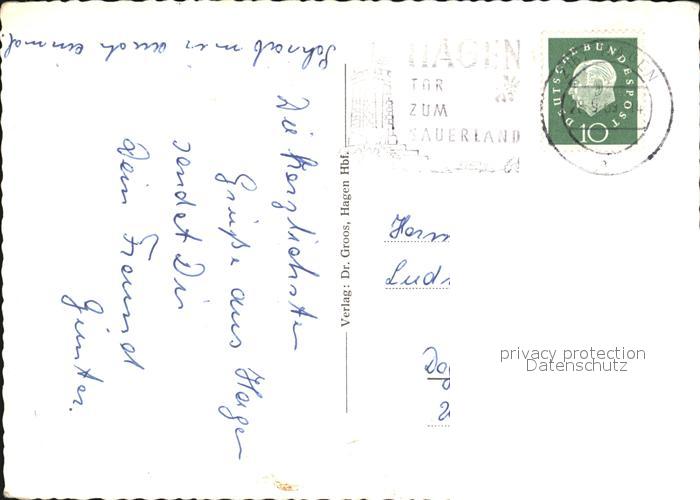 Schreib mir auch einmal.
Die herzlichsten
Grüße aus Hagen
sendet Dir
Dein Freund
Günter.
Verlag: Dr. Groos, Hagen Hbf.
HAGEN
TOR
ZUM
SAUERLAND
DEUTSCHE BUNDESPOST
10
Herrn
Datenschutz
privacy protection